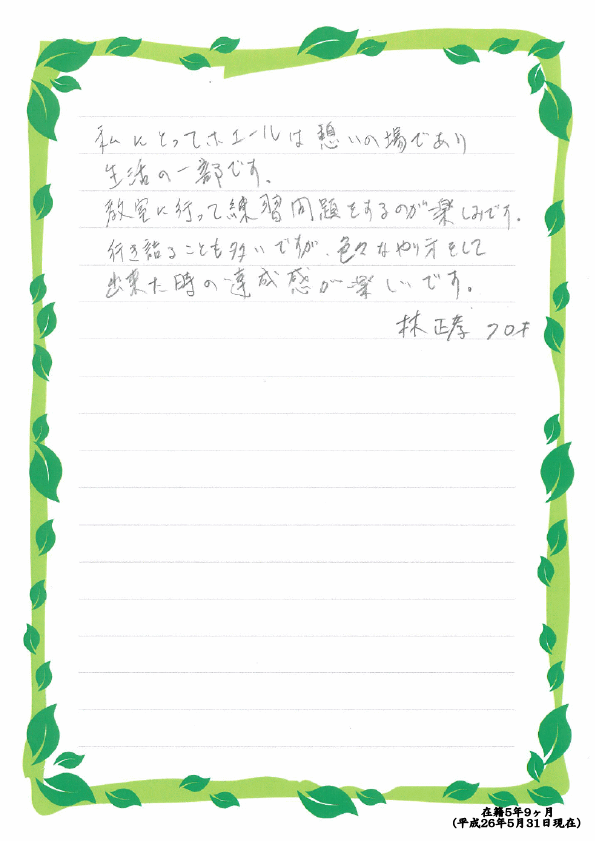 私にとってホエールは憩いの場であり
生活の一部です。
教室に行って練習問題をするのが楽しみです。
行き詰ることも多いですが、色々なやり方をして
出来た時の達成感が楽しいです。
林 正孝
在籍5年9ヶ月
(平成26年5月31日現在)